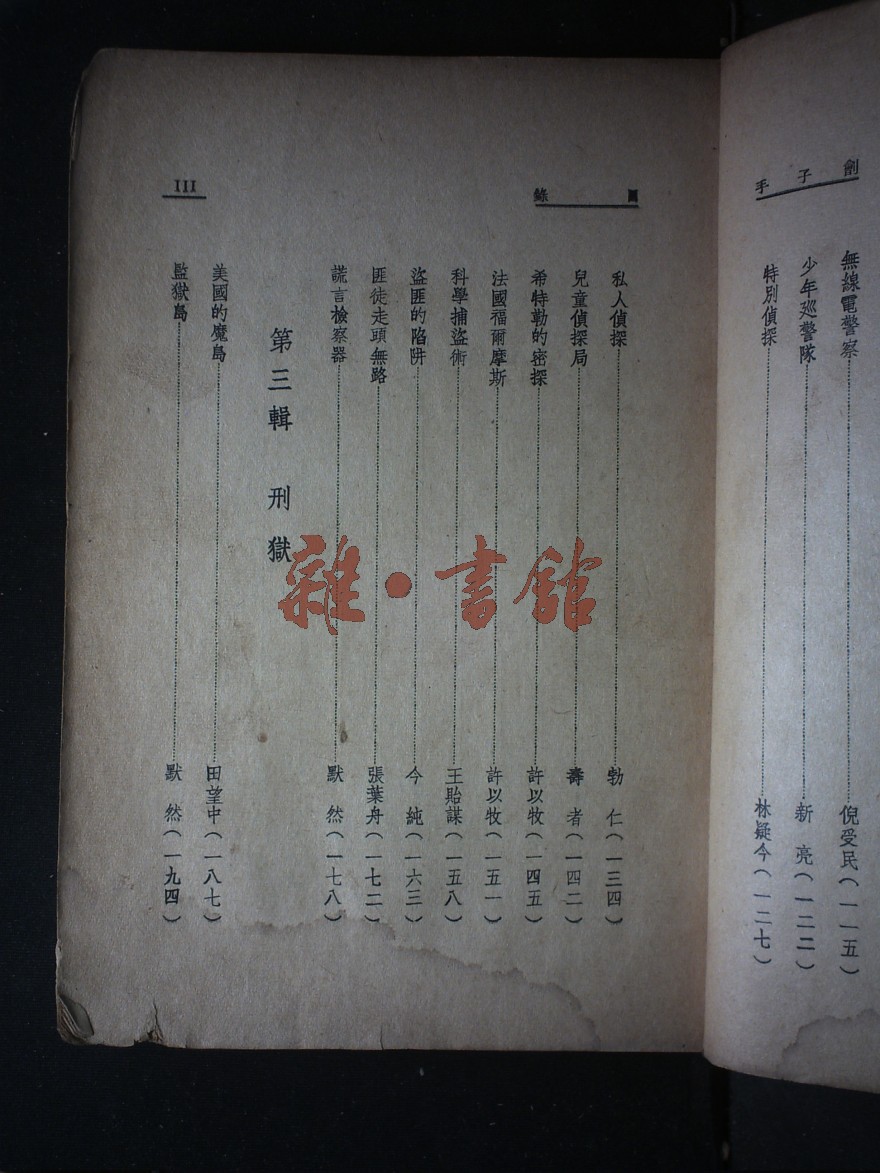 劊子手
無線電警察 倪受民(一一五)
少年巡警隊 新亮(一二二)
特別偵探 林疑今(一二七)
目錄
III
私人偵探 勃仁(一三四)
兒童偵探局 壽者(一四二)
希特勒的密探 許以牧(一四五)
法國福爾摩斯 許以牧(一五一)
科學捕盜術 王貽謀(一五八)
盜匪的陷阱 今純(一六三)
匪徒走頭無路 張葉舟(一七二)
謊言檢察器 默然(一七八)
第三輯 刑獄
美國的魔島 田望中(一八七)
監獄島 默然(一九四)
雜·書館